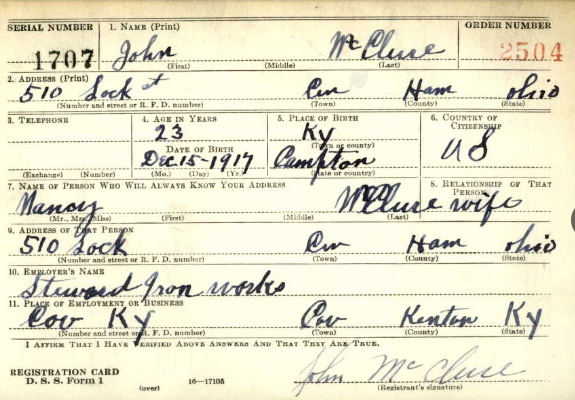 SERIAL NUMBER 1. NAME (Print) ORDER NUMBER
1707 John McCluse 2504
(First) (Middle) (Last)
2. ADDRESS (Print)
510 Lock st Cin Ham Ohio
(Number and street or R. F. D. number) (Town) (County) (State)
3. TELEPHONE 4. AGE IN YEARS 5. PLACE OF BIRTH 6. COUNTRY OF CITIZENSHIP
23 Ky US
(Town or county)
DATE OF BIRTH
Dec. 15-1917 Campton
(Exchange) (Number) (Mo.) (Day) (Yr.) (State or country)
7. NAME OF PERSON WHO WILL ALWAYS KNOW YOUR ADDRESS 8. RELATIONSHIP OF THAT PERSON
Nancy McCluse wife
(Mr., Mrs., Miss) (First) (Middle) (Last)
9. ADDRESS OF THAT PERSON
510 Lock Cin Ham Ohio
(Number and street or R. F. D. number) (Town) (County) (State)
10. EMPLOYER'S NAME
Steward Iron works
11. PLACE OF EMPLOYMENT OR BUSINESS
Cov Ky Cov Kenton Ky
(Number and street or R. F. D. number) (Town) (County) (State)
I AFFIRM THAT I HAVE VERIFIED ABOVE ANSWERS AND THAT THEY ARE TRUE.
REGISTRATION CARD John McCluse
D. S. S. Form 1 (over) 16—17105 (Registrant's signature)